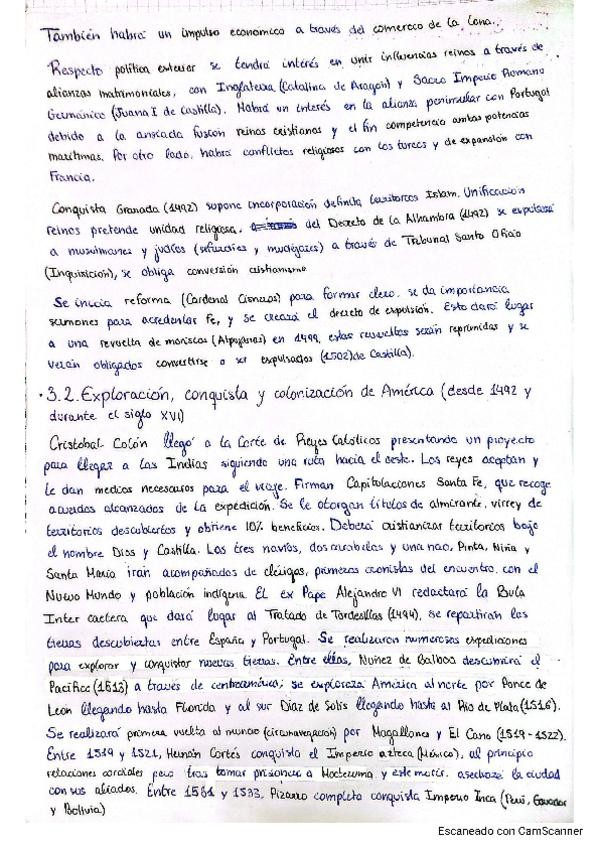 También habrá un impulso económico a través del comercio de la lana.
Respecto política exterior se tendrá interés en unir influencias reinos a través de
alianzas matrimoniales, con Inglaterra (Catalina de Aragón) y Sacro Imperio Romano
Germánico (Juana I de Castilla). Habrá un interés en la alianza peninsular con Portugal
debido a la ansiada fusión reinos cristianos y el fin competencia ambas potencias
marítimas. Por otro lado, habrá conflictos religiosos con los turcos y de expansión con
Francia.
Conquista Granada (1492) supone incorporación definita territorios Islam. Unificación
reinos pretende unidad religiosa, del Decreto de la Alhambra (1492) se expulsará
a musulmanes y judíos (sefardíes y mudéjares) a través de Tribunal Santo Oficio
(Inquisición), se obliga conversión cristianismo
Se inicia reforma (Cardenal Cisneros) para formar clero, se da importancia
sermones para acrecentar fe, y se creará el decreto de expulsión. Esto dará lugar
a una revuelta de moriscos (Alpujarras) en 1499, estas revueltas serán reprimidas y se
verán obligados convertirse o ser expulsados (1502) de Castilla).
· 3.2. Exploración, conquista y colonización de América (desde 1492 y
durante el siglo XVI)
Cristobal Colón llegó a la Corte de Reyes Católicos presentando un proyecto
para llegar a las Indias siguiendo una ruta hacia el oeste. Los reyes aceptan y
le dan medios necesarios para el viaje. Firman Capitulaciones Santa Fe, que recoge
acuerdos alcanzados de la expedición. Se le otorgan títulos de almirante, virrey de
territorios descubiertos y obtiene 10% beneficios. Deberá cristianizar territorios bajo
el nombre Dios y Castilla. Los tres navíos, dos carabelas y una nao, Pinta, Niña y
Santa María irán acompañados de clérigos, primeros cronistas del encuentro con el
Nuevo Mundo y población indígena. El ex Papa Alejandro VI redactará la Bula
Inter caetera que dará lugar al Tratado de Tordesillas (1494), se repartirán las
tierras descubiertas entre España y Portugal. Se realizaron numerosas expediciones
para explorar y conquistar nuevas tierras. Entre ellas, Nuñez de Balboa descubrirá el
Pacífico (1513) a través de centroamérica; se explorará América al norte por Ponce de
León llegando hasta Florida y al sur Díaz de Solís llegando hasta al Río de Plata (1516).
Se realizará primera vuelta al mundo (circunnavegación) por Magallanes y El Cano (1519-1522).
Entre 1519 y 1521, Hernán Cortés conquista el Imperio azteca (México), al principio
relaciones cordiales pero tras tomar prisionero a Moctezuma y este morir, asechará la ciudad
con sus aliados. Entre 1531 y 1533, Pizarro completa conquista Imperio Inca (Perú, Ecuador
y Bolivia)
Escaneado con CamScanner